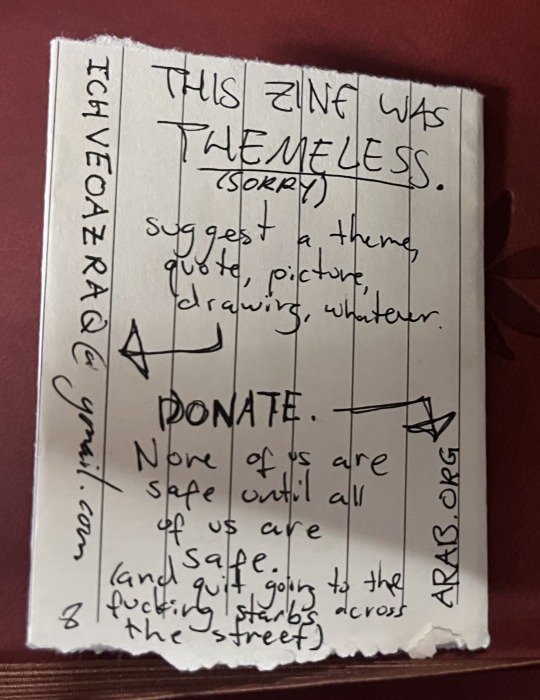 THIS ZINE WAS
THEMELESS.
(SORRY)
suggest a theme,
quote, picture,
drawing, whatever.
ICHVEOAZRAQ@gmail.com
DONATE.
ARAB.ORG
None of us are
safe until all
of us are
safe.
(and quit going to the
fucking starbs across
the street)
8